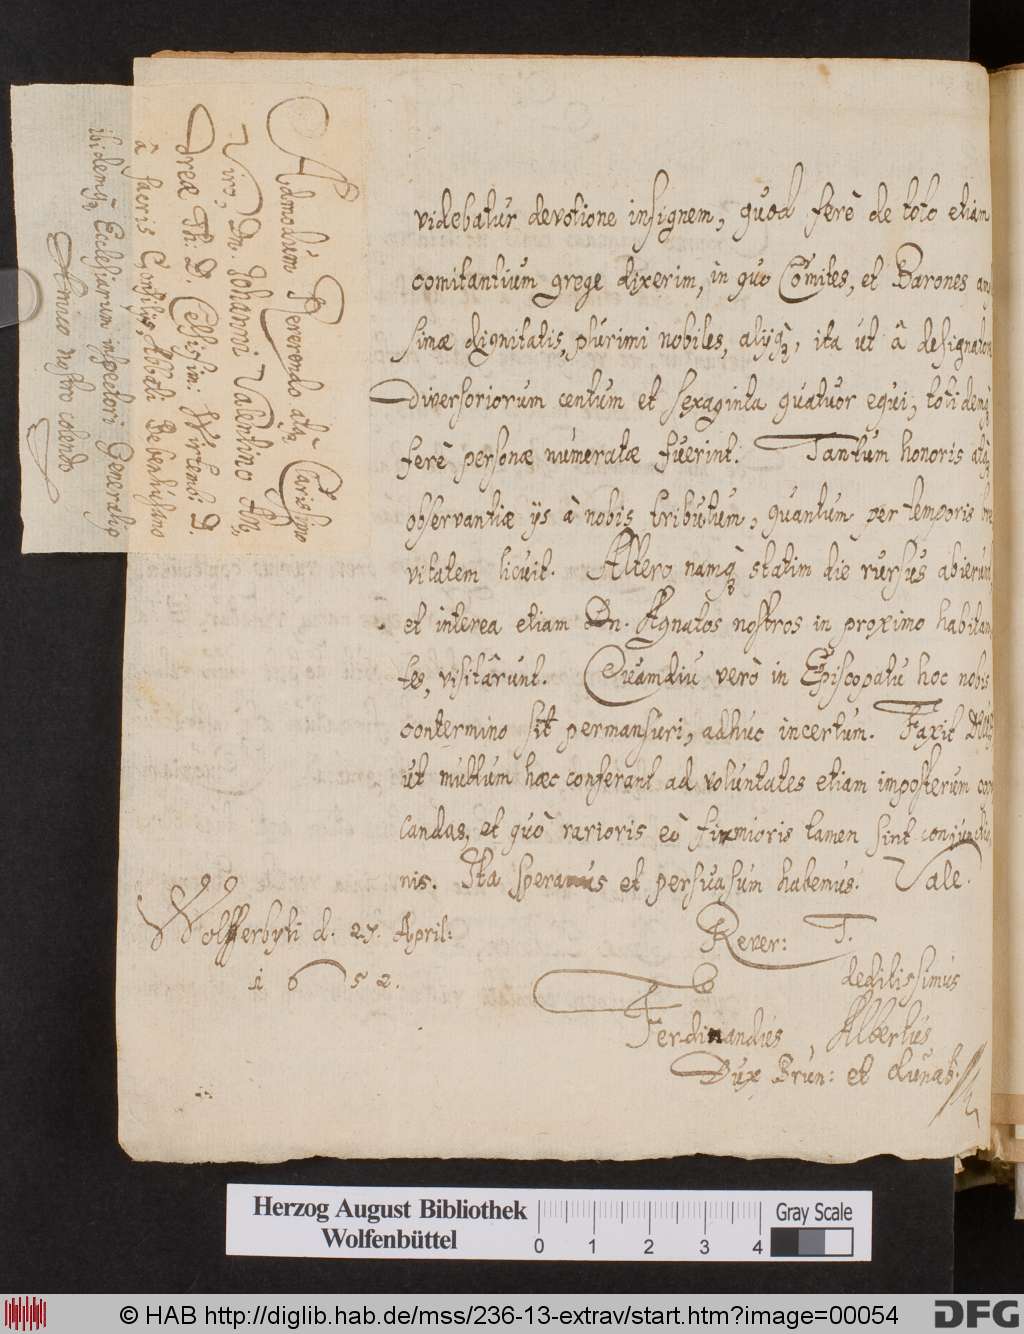 Admodùm Reverendo atq; Clarissimo
Viro, Dn. Johanni Valentino An,
dreæ Th. D. Celsissimi Wirtemb: D.
â sacris Consilijs, Abbati Bebenhusano
ibidemq; Ecclesiarum inspectori Generali
Amico nostro colendo
videbatur devotione insignem, quod ferè de toto etiam
comitantium grege dixerim, in quo Comites, et Barones
simæ dignitatis, plurimi nobiles, alijq;, ita ut â designatore
diversoriorum centum et sexaginta quatuor equi, totidemq;
ferè personæ numeratæ fuerint. Tantum honoris atq;
observantiæ ijs à nobis tributum, quantum per temporis bre
vitatem licuit. Altero namq; statim die rursus abierunt
et interea etiam Dn. Agnatos nostros in proximo habitan
tes, visitârunt. Quamdiu verò in Episcopatu hoc nobis
contermino sit permansuri, adhuc incertum. Faxit Deus
ut multum hæc conferant ad voluntates etiam imposterum con
candas, et quò rarioris eò firmioris tamen sint conjunctio
nis. Ita speramus et persuasum habemus. Vale.
Wolfferbyti d. 27. April:
1652.
Rever: T.
deditissimus
Ferdinandus Albertus
Dux Brun: et Lunæb.
Herzog August Bibliothek
Wolfenbüttel
0 1 2 3 4
Gray Scale
© HAB http://diglib.hab.de/mss/236-13-extrav/start.htm?image=00054
DFG